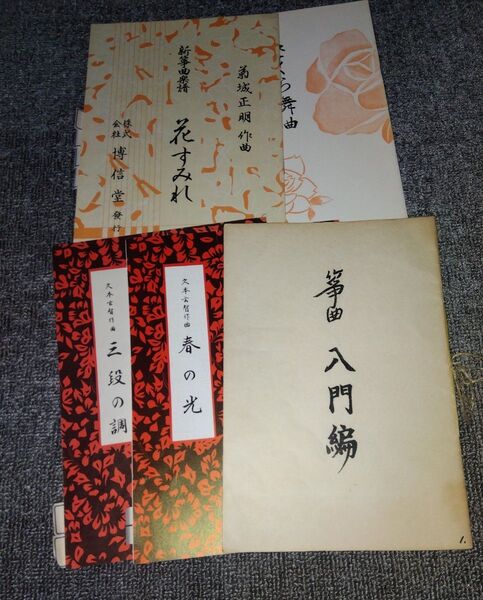 新箏曲楽譜
菊城正明作曲
花すみれ
株式会社 博信堂 發行
ら舞曲
久本玄智作曲
三段の調
久本玄智作曲
春の光
箏曲 入門編
1.